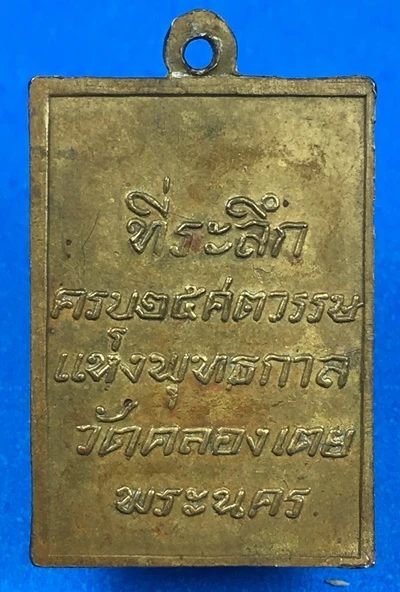 ที่ระลึก
ครบ๒๕ศตวรรษ
แห่งพุทธกาล
วัดคลองเตย
พระนคร